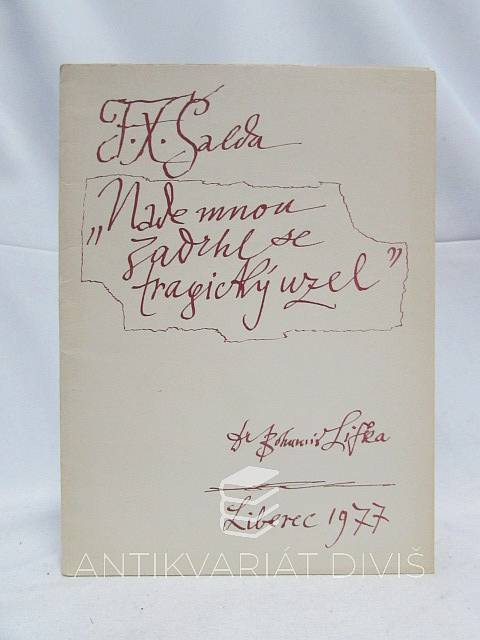 F. X. Šalda
„Nade mnou
zadrhl se
tragický uzel"
Dr Bohumír Lifka
Liberec 1977
ANTIKVARIÁT DIVIŠ